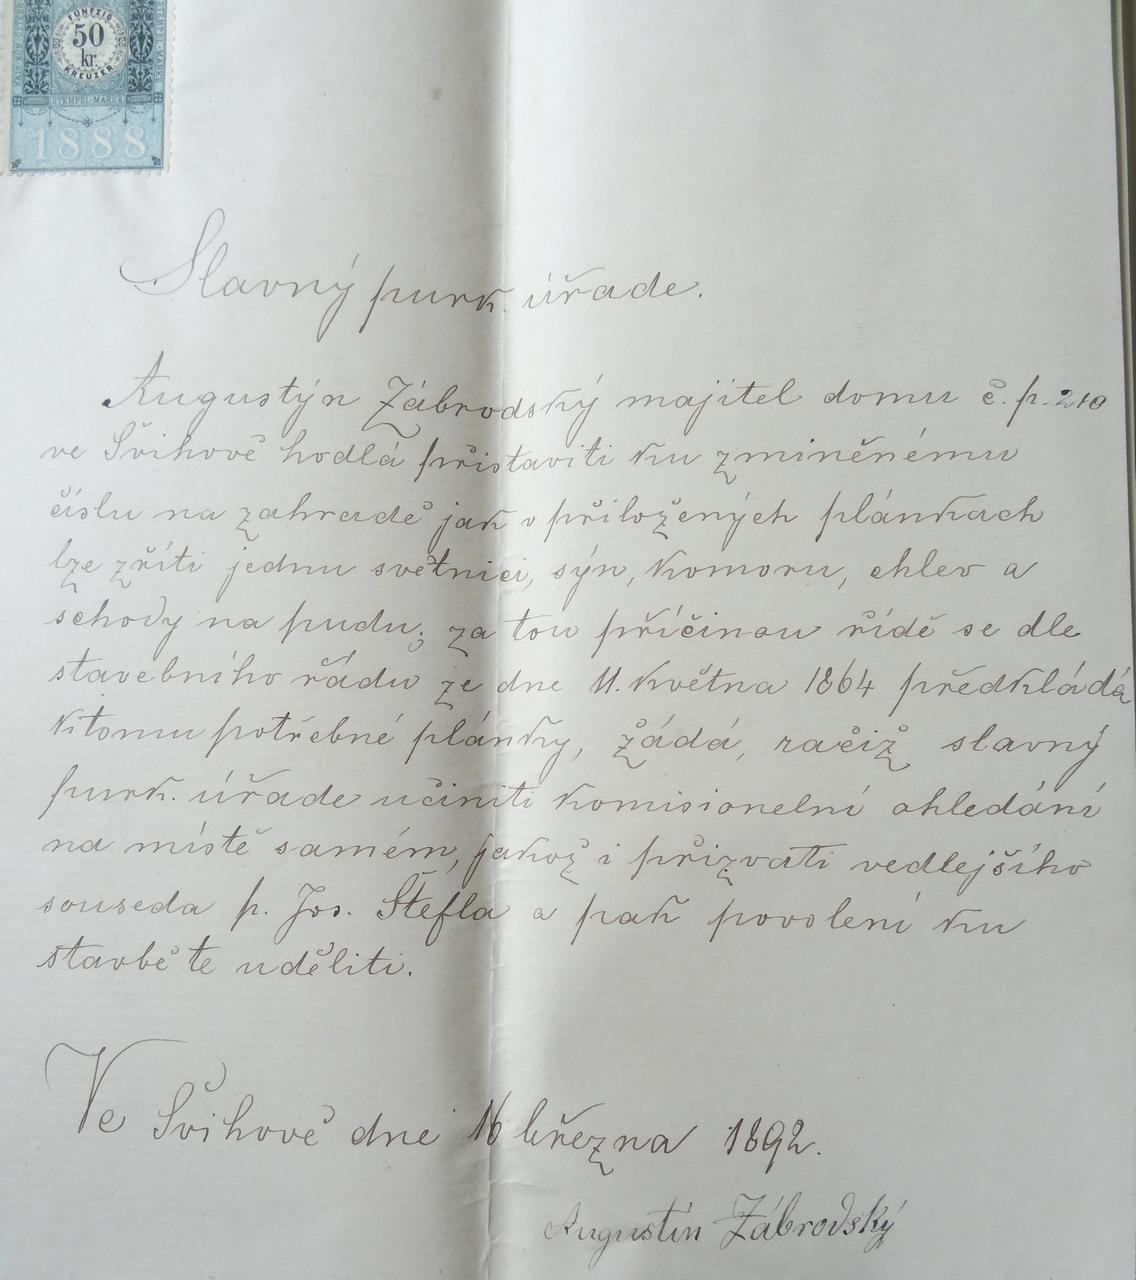 FÜNFZIG
50
kr.
KREUZER
STEMPEL-MARKE
1888
Slavný purk. úřade.
Augustýn Zábrodský majitel domu č. p. 210
ve Švihově hodlá přistaviti ku zmíněnému
číslu na zahradě jak v přiložených plánkach
lze zříti jednu světnici, sýn, komoru, chlev a
schody na pudu; za tou příčinou řídě se dle
stavebního řádu ze dne 11. května 1864 předkládá
ktomu potřebné plánky, žádá, račiž slavný
purk. úřade učiniti komisionelní ohledání
na místě samém, jakož i přizvati vedlejšího
souseda p. Jos. Štefla a pak povolení ku
stavbě te uděliti.
Ve Švihově dne 16 března 1892.
Augustín Zábrodský